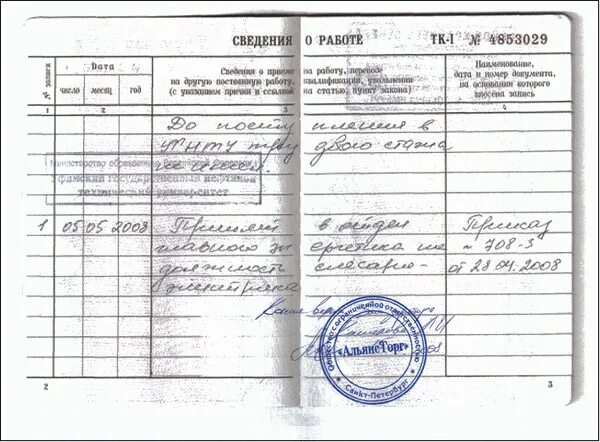 СВЕДЕНИЯ О РАБОТЕ ТК-I № 4853029
№ записи
Дата
число месяц год
Сведения о приеме на работу, переводе
на другую постоянную работу, квалификации, увольнении
(с указанием причин и ссылкой на статью, пункт закона)
Наименование,
дата и номер документа,
на основании которого
внесена запись
1 2 3 4
До поступления в
УГНТУ трудового стажа
не имеет.
технический университет
1 05 05 2008 Принят в отдел Приказ
главного энергетика на № 708-з
должность слесаря- от 28.04.2008
электрика
Общество с ограниченной ответственностью
«АльянсТорг»
Санкт-Петербург
2 3